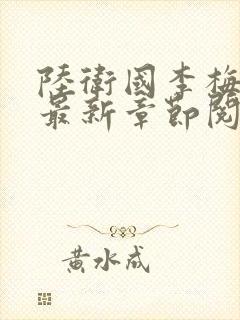 陸衛國李梅
最新章節閱
黃水成